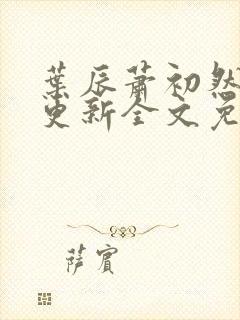 葉辰蕭初然
更新全文免
薩賓